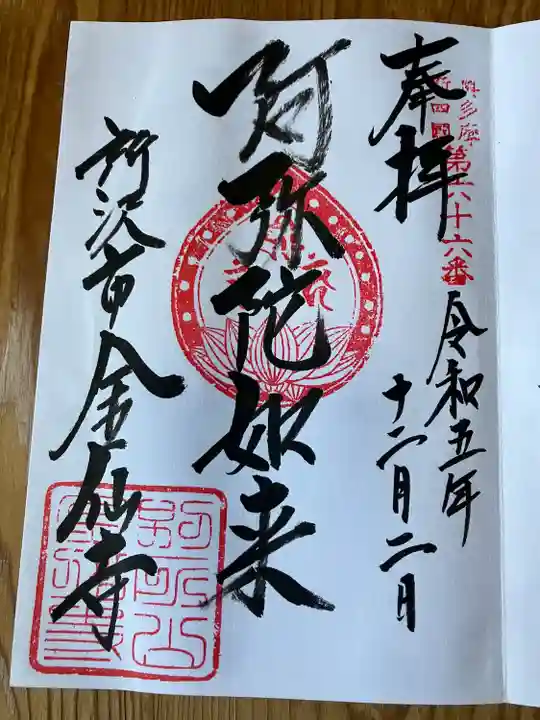 奉拝
第六十六番
令和五年
十二月二日
阿弥陀如来
所沢市金仙寺
別所山